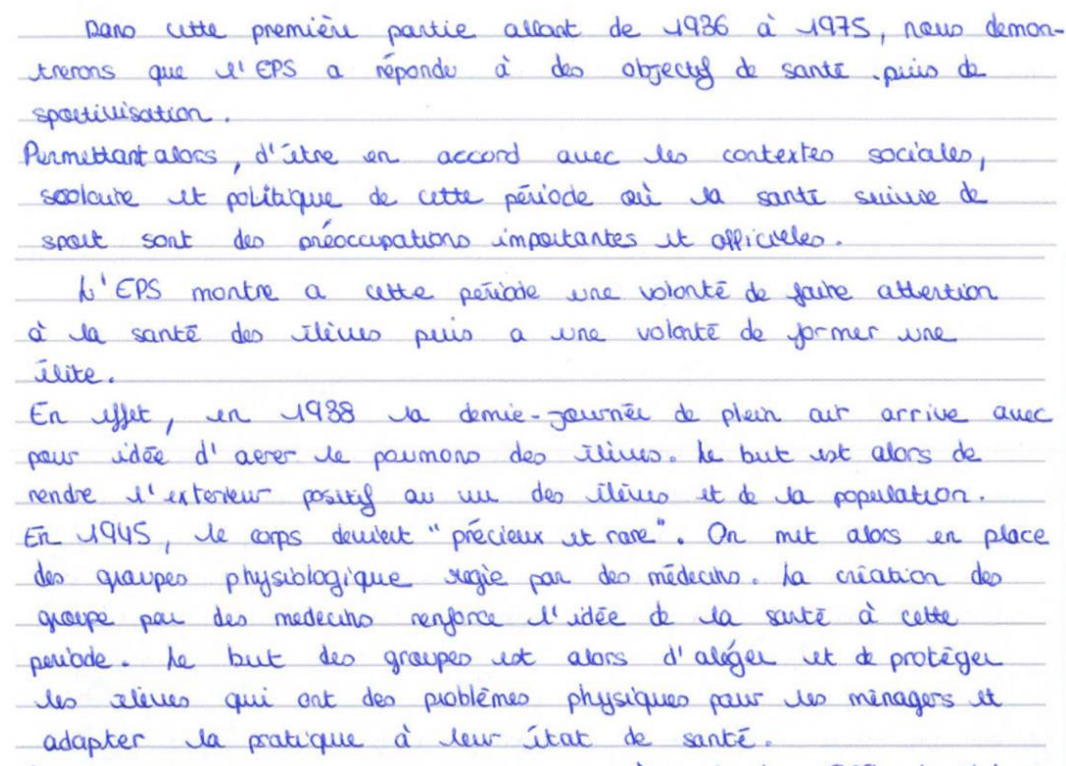 Dans cette première partie allant de 1936 à 1975, nous démon-
trerons que l'EPS a répondu à des objectif de santé puis de
sportivisation.
Permettant alors, d'être en accord avec les contextes sociales,
scolaire et politique de cette période où la santé suivie de
sport sont des préoccupations importantes et officieles.
L'EPS montre a cette période une volonté de faire attention
à la santé des élèves puis a une volonté de former une
élite.
En effet, en 1938 la demie-journée de plein air arrive avec
pour idée d'aerer le poumons des élèves. Le but est alors de
rendre l'exterieur positif au vu des élèves et de la population.
En 1945, le corps devient "précieux et rare". On met alors en place
des groupes physiologique regie par des médecins. La création des
groupe par des medecins renforce l'idée de la santé à cette
periode. Le but des groupes est alors d'aléger et de protéger
les élèves qui ont des problèmes physiques pour les ménagers et
adapter la pratique à leur état de santé.